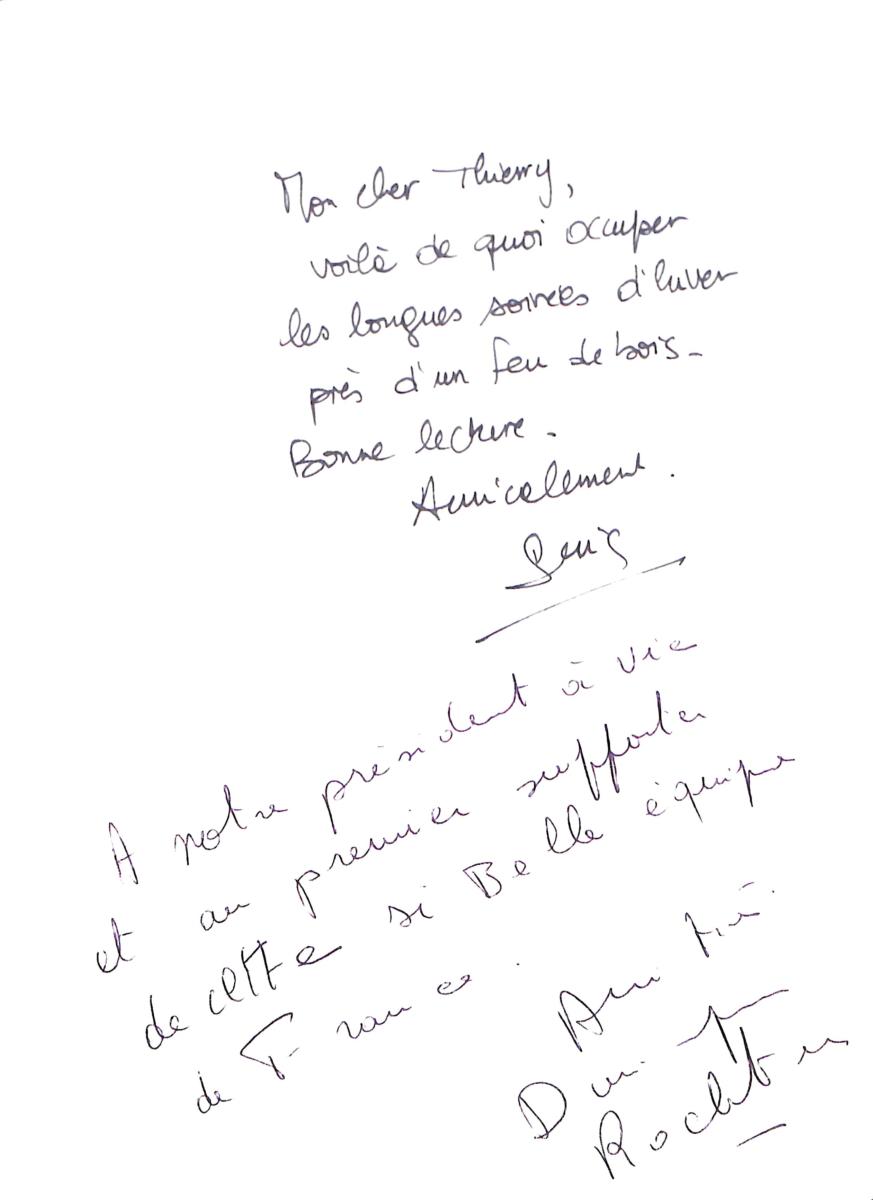 Mon cher Thierry,
voilà de quoi occuper
les longues soirées d'hiver
près d'un feu de bois.
Bonne lecture.
Amicalement.
Denis
A notre président à vie
et au premier supporter
de cette si Belle équipe
de France.
Amitié.
Dominique